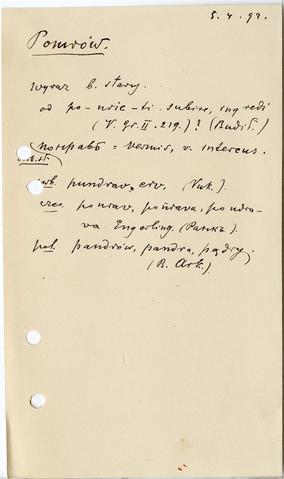 5. 4. 92.
Pomrów.
wyraz b. stary.
od po-nrie-ti. subire, ingredi
(V. Gr. II. 219.)? (Budil.)
понравъ = vermis, v. intercus.
serb. pundrav, crv. (Vuk.).
czes. ponrav, poňrava, pondra-
va. Engerling. (Pankz).
pol. pandrów, pandra, pędry.
(B. Ark.)